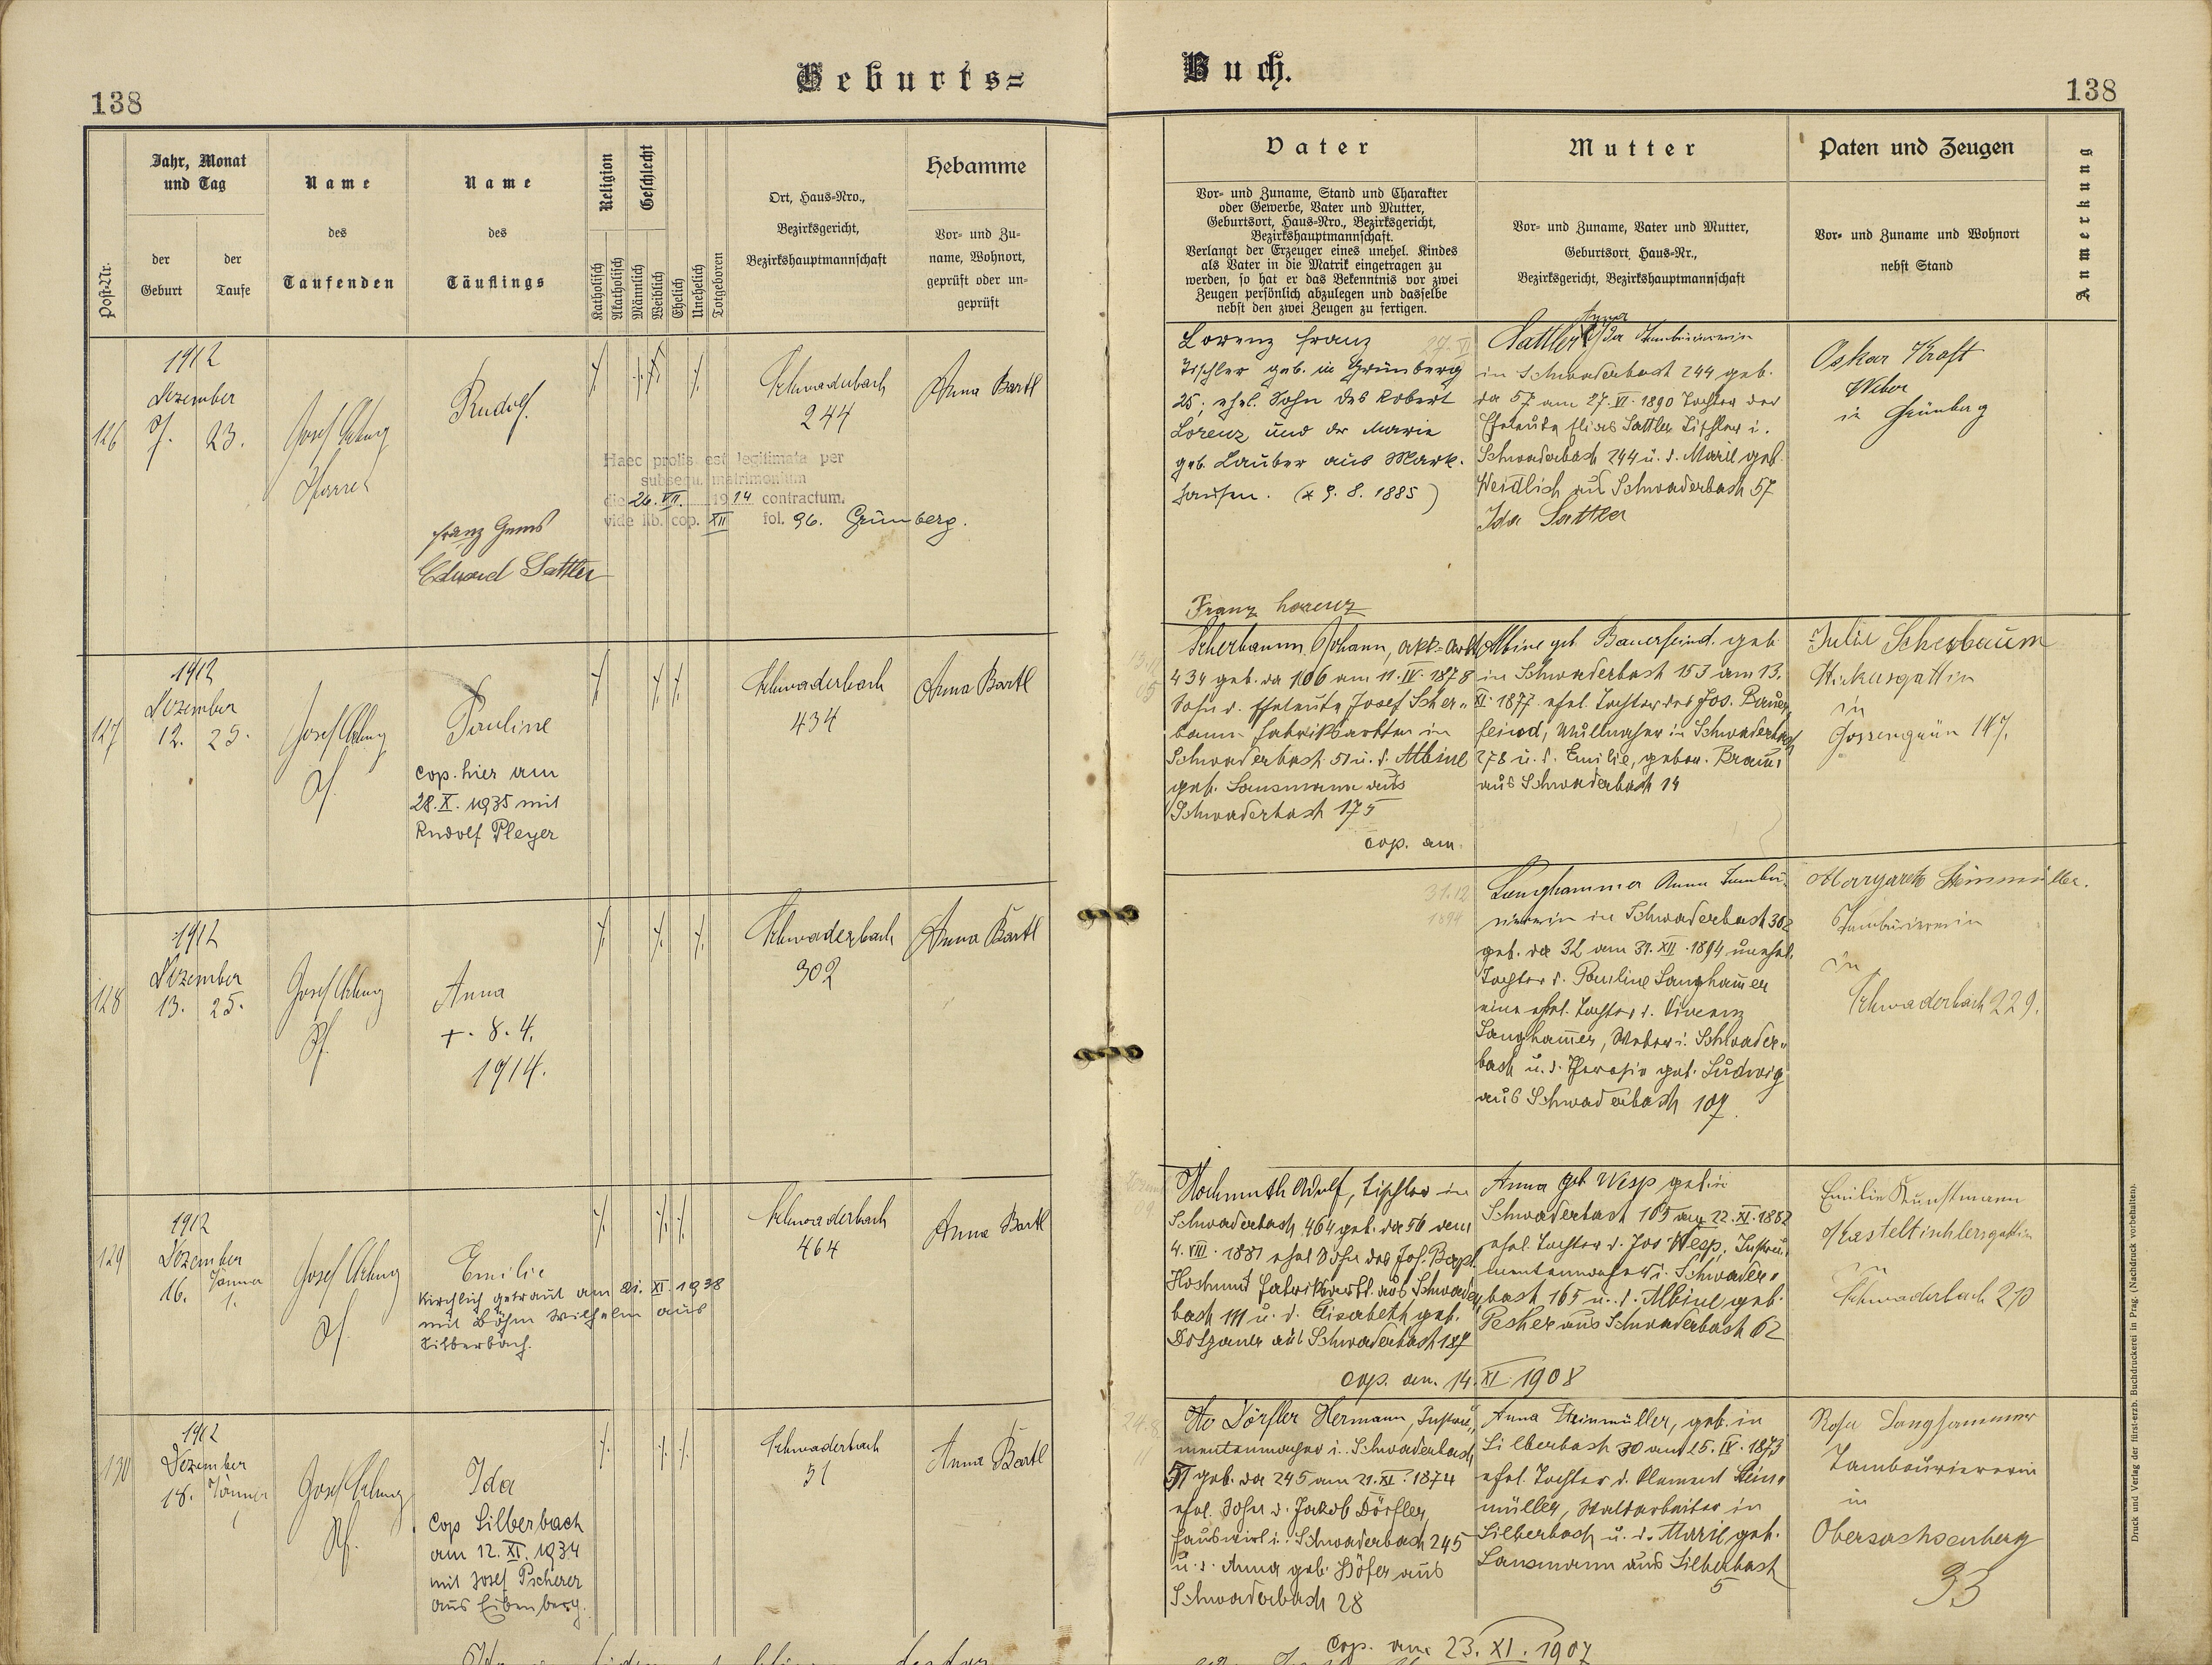 138
Geburts=
Buch.
138
Post-Nr.
Jahr, Monat
und Tag
der
Geburt
der
Taufe
Name
des
Taufenden
Name
des
Täuflings
Religion
Katholisch
Akatholisch
Geschlecht
Männlich
Weiblich
Ehelich
Unehelich
Totgeboren
Ort, Haus=Nro.,
Bezirksgericht,
Bezirkshauptmannschaft
Hebamme
Vor- und Zu-
name, Wohnort,
geprüft oder un-
geprüft
Vater
Vor- und Zuname, Stand und Charakter
oder Gewerbe, Vater und Mutter,
Geburtsort, Haus=Nro., Bezirksgericht,
Bezirkshauptmannschaft.
Verlangt der Erzeuger eines unehel. Kindes
als Vater in die Matrik eingetragen zu
werden, so hat er das Bekenntnis vor zwei
Zeugen persönlich abzulegen und dasselbe
nebst den zwei Zeugen zu fertigen.
Mutter
Vor- und Zuname, Vater und Mutter,
Geburtsort, Haus-Nr.,
Bezirksgericht, Bezirkshauptmannschaft
Paten und Zeugen
Vor- und Zuname und Wohnort
nebst Stand
Anmerkung
126
1912
Dezember
7. 23.
Josef
Pfarrer
Rudolf.
Franz
Eduard Sattler
Haec prolis est legitimata per
subsequ. matrimonium
die 26. VII. 1914 contractum.
vide lib. cop. XII fol. 96. Grünberg.
Schwaderbach
244
Anna Bartl
Lorenz Franz
Tischler geb. in Grünberg
25; ehel. Sohn des Robert
Lorenz und der Marie
geb. Lauber aus Mark-
hausen. (* 9. 8. 1885)
Franz Lorenz
Anna
Sattler Ida Tambouriererin
in Schwaderbach 244 geb.
da 57 am 27. VI. 1890 Tochter der
Eheleute Elias Sattler Tischler i.
Schwaderbach 244 u. d. Marie geb.
Weidlich aus Schwaderbach 57
Ida Sattler
Oskar Kraft
Weber
in Grünberg
127
1912
Dezember
12. 25.
Josef
Pf.
Pauline
cop. hier am
28. X. 1935 mit
Rudolf Pleyer
Schwaderbach
434
Anna Bartl
Scherbaum Johann,
434 geb. da 106 am 11. IV. 1878
Sohn d. Eheleute Josef Scher-
baum Fabriksarbtr in
Schwaderbach 51 u. d. Albine
geb. Lausmann aus
Schwaderbach 175
cop. am
Albine geb. Bauerfeind. geb.
in Schwaderbach 153 am 13.
XI. 1877 ehel. Tochter des Jos. Bauer-
feind, in Schwaderbach
278 u. d. Emilie, gebor. Braun
aus Schwaderbach 14
Julie Scherbaum
in
Gossengrün 147.
128
1912
Dezember
13. 25.
Josef
Pf.
Anna
+. 8. 4.
1914.
Schwaderbach
302
Anna Bartl
31.12
1894
Langhammer Anna Tambu-
riererin in Schwaderbach 302
geb. da 32 am 31. XII. 1894 unehel.
Tochter d. Pauline Langhammer
eine ehel. Tochter d. Vincenz
Langhammer, Weber i. Schwader-
bach u. d. Theresia geb. Ludwig
aus Schwaderbach 107.
Margareth Steinmüller.
Tambouriererin
in
Schwaderbach 229.
129
1912
Dezember Jänner
16. 1.
Josef
Pf.
Emilie
Kirchlich getraut am 21. XI. 1938
mit Böhm Wilhelm aus
Silberbach.
Schwaderbach
464
Anna Bartl
Hochmuth Adolf, Tischler in
Schwaderbach 464 geb. da 56 dem
4. VIII. 1881 ehel. Sohn des Joh. Bapt.
Hochmut Fabriksarbt. aus Schwader-
bach 111 u. d. Elisabeth geb.
Dotzauer aus Schwaderbach 187
cop. am. 14. XI. 1908
Anna geb. Wesp geb. in
Schwaderbach 165 am 22. XI. 1882
ehel. Tochter d. Jos Wesp, Instru-
mentenmacher i. Schwader-
bach 165 u. d. Albine geb.
aus Schwaderbach 62
Emilie Kunstmann
in
Schwaderbach 270
130
1912
Dezember Jänner
18. 1
Josef
Pf.
Ida
Cop Silberbach
am 12. XI. 1934
mit Josef Pscherer
aus Eibenberg.
Schwaderbach
51
Anna Bartl
24. 8.
11
Dörfler Hermann, Instru-
mentenmacher i. Schwaderbach
51 geb. da 245 am 21. XI. 1874
ehel. Sohn d. Jakob Dörfler,
Hauswirt i. Schwaderbach 245
u. d. Anna geb. Höfer aus
Schwaderbach 28
cop. am 23. XI. 1907
Anna Steinmüller, geb. in
Silberbach 30 am 25. IV. 1873
ehel. Tochter d. Klement Stein-
müller, Waldarbeiter in
Silberbach u. d. Marie geb.
Lausmann aus Silberbach
5
Rosa Langhammer
Tambouriererin
in
Obersachsenberg
33
Druck und Verlag der fürst-erzb. Buchdruckerei in Prag. (Nachdruck vorbehalten).